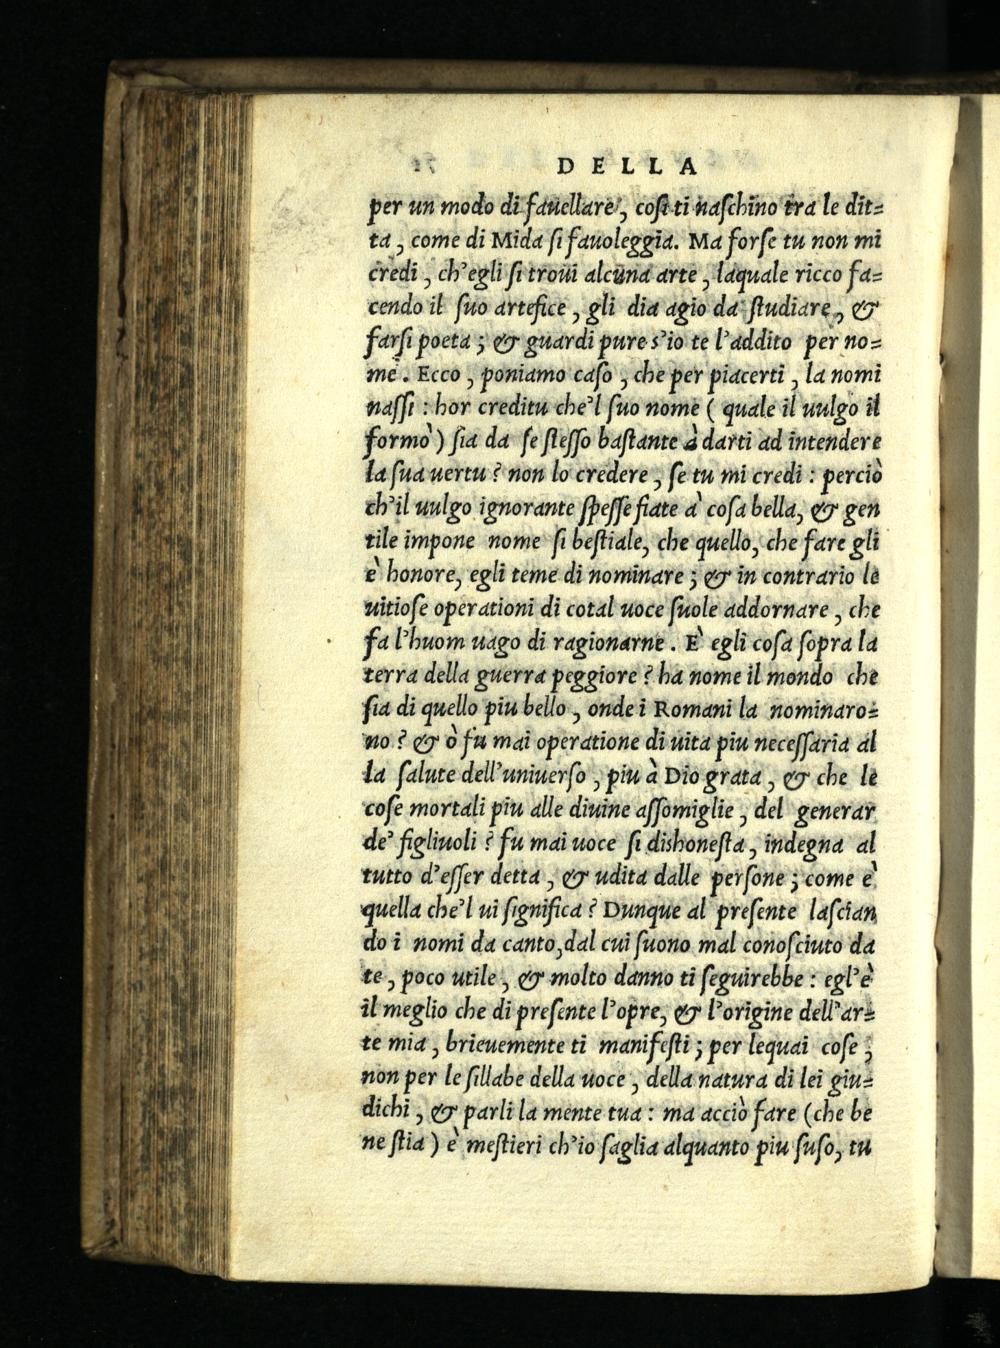 DELLA
per un modo di fauellare, cosi ti naschino tra le dit=
ta, come di Mida si fauoleggia. Ma forse tu non mi
credi, ch'egli si troui alcuna arte, laquale ricco fa=
cendo il suo artefice, gli dia agio da studiare, &
farsi poeta; & guardi pure s'io te l'addito per no=
me. Ecco, poniamo caso, che per piacerti, la nomi
nassi: hor creditu che'l suo nome (quale il uulgo il
formò) sia da se stesso bastante à darti ad intendere
la sua uertu? non lo credere, se tu mi credi: perciò
ch'il uulgo ignorante spesse fiate à cosa bella, & gen
tile impone nome si bestiale, che quello, che fare gli
è honore, egli teme di nominare; & in contrario le
uitiose operationi di cotal uoce suole addornare, che
fa l'huom uago di ragionarne. E' egli cosa sopra la
terra della guerra peggiore? ha nome il mondo che
sia di quello piu bello, onde i Romani la nominaro=
no? & ò fu mai operatione di uita piu necessaria al
la salute dell'uniuerso, piu à Dio grata, & che le
cose mortali piu alle diuine assomiglie, del generar
de' figliuoli? fu mai uoce si dishonesta, indegna al
tutto d'esser detta, & udita dalle persone; come è
quella che'l ui significa? Dunque al presente lascian
do i nomi da canto, dal cui suono mal conosciuto da
te, poco utile, & molto danno ti seguirebbe: egl'è
il meglio che di presente l'opre, & l'origine dell'ar=
te mia, brieuemente ti manifesti; per lequai cose,
non per le sillabe della uoce, della natura di lei giu=
dichi, & parli la mente tua: ma acciò fare (che be
ne stia) è mestieri ch'io saglia alquanto piu suso, tu